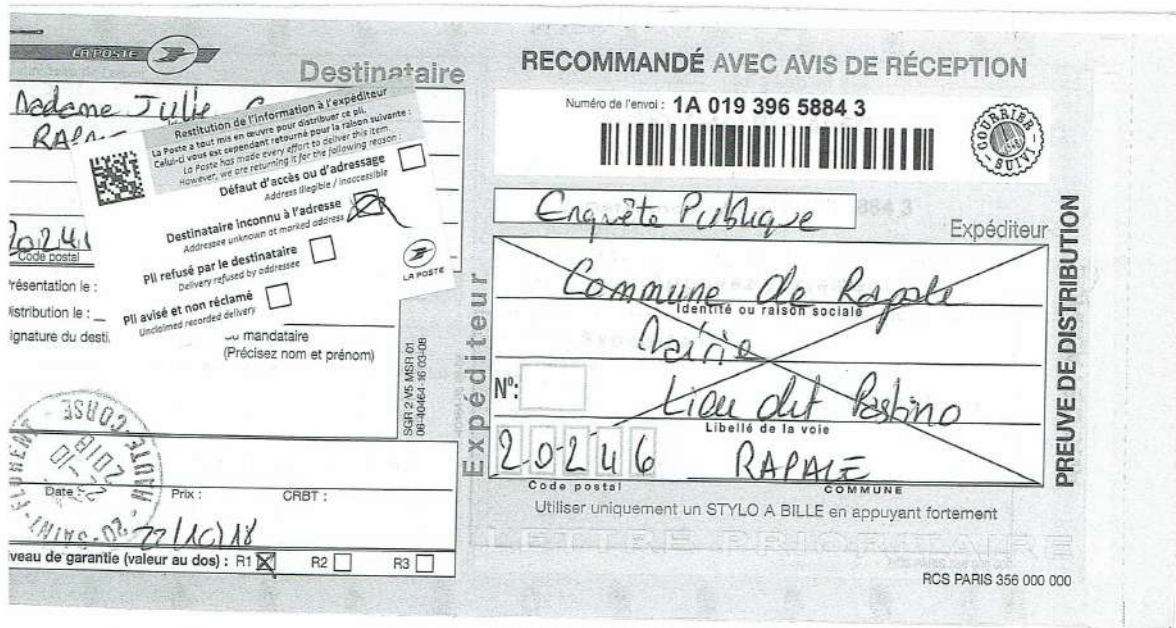 LA POSTE
Destinataire
Madame Julie
RAPA
Restitution de l'information à l'expéditeur
La Poste a tout mis en œuvre pour distribuer ce pli.
Celui-ci vous est cependant retourné pour la raison suivante :
La Poste has made every effort to deliver this item.
However, we are returning it for the following reason :
Défaut d'accès ou d'adressage
Address illegible / inaccessible
Destinataire inconnu à l'adresse
Addressee unknown at marked address
Pli refusé par le destinataire
Delivery refused by addressee
Pli avisé et non réclamé
Unclaimed recorded delivery
LA POSTE
Code postal
résentation le :
istribution le :
ignature du desti
mandataire
(Précisez nom et prénom)
SGR 2 V5 MSR 01
HAUTE-CORSE
22-10
2018
20-SAINT-FLORENT
Date
Prix :
CRBT :
22/10/18
veau de garantie (valeur au dos) : R1 R2 R3
Expéditeur
RECOMMANDÉ AVEC AVIS DE RÉCEPTION
Numéro de l'envoi : 1A 019 396 5884 3
COURRIER SUIVI
Enquête Publique
Expéditeur
Commune de Rapale
Identité ou raison sociale
Mairie
N°:
Lieu dit Pastino
Libellé de la voie
20246 RAPALE
Code postal COMMUNE
Utiliser uniquement un STYLO A BILLE en appuyant fortement
LETTRE PRIORITAIRE
RCS PARIS 356 000 000
PREUVE DE DISTRIBUTION